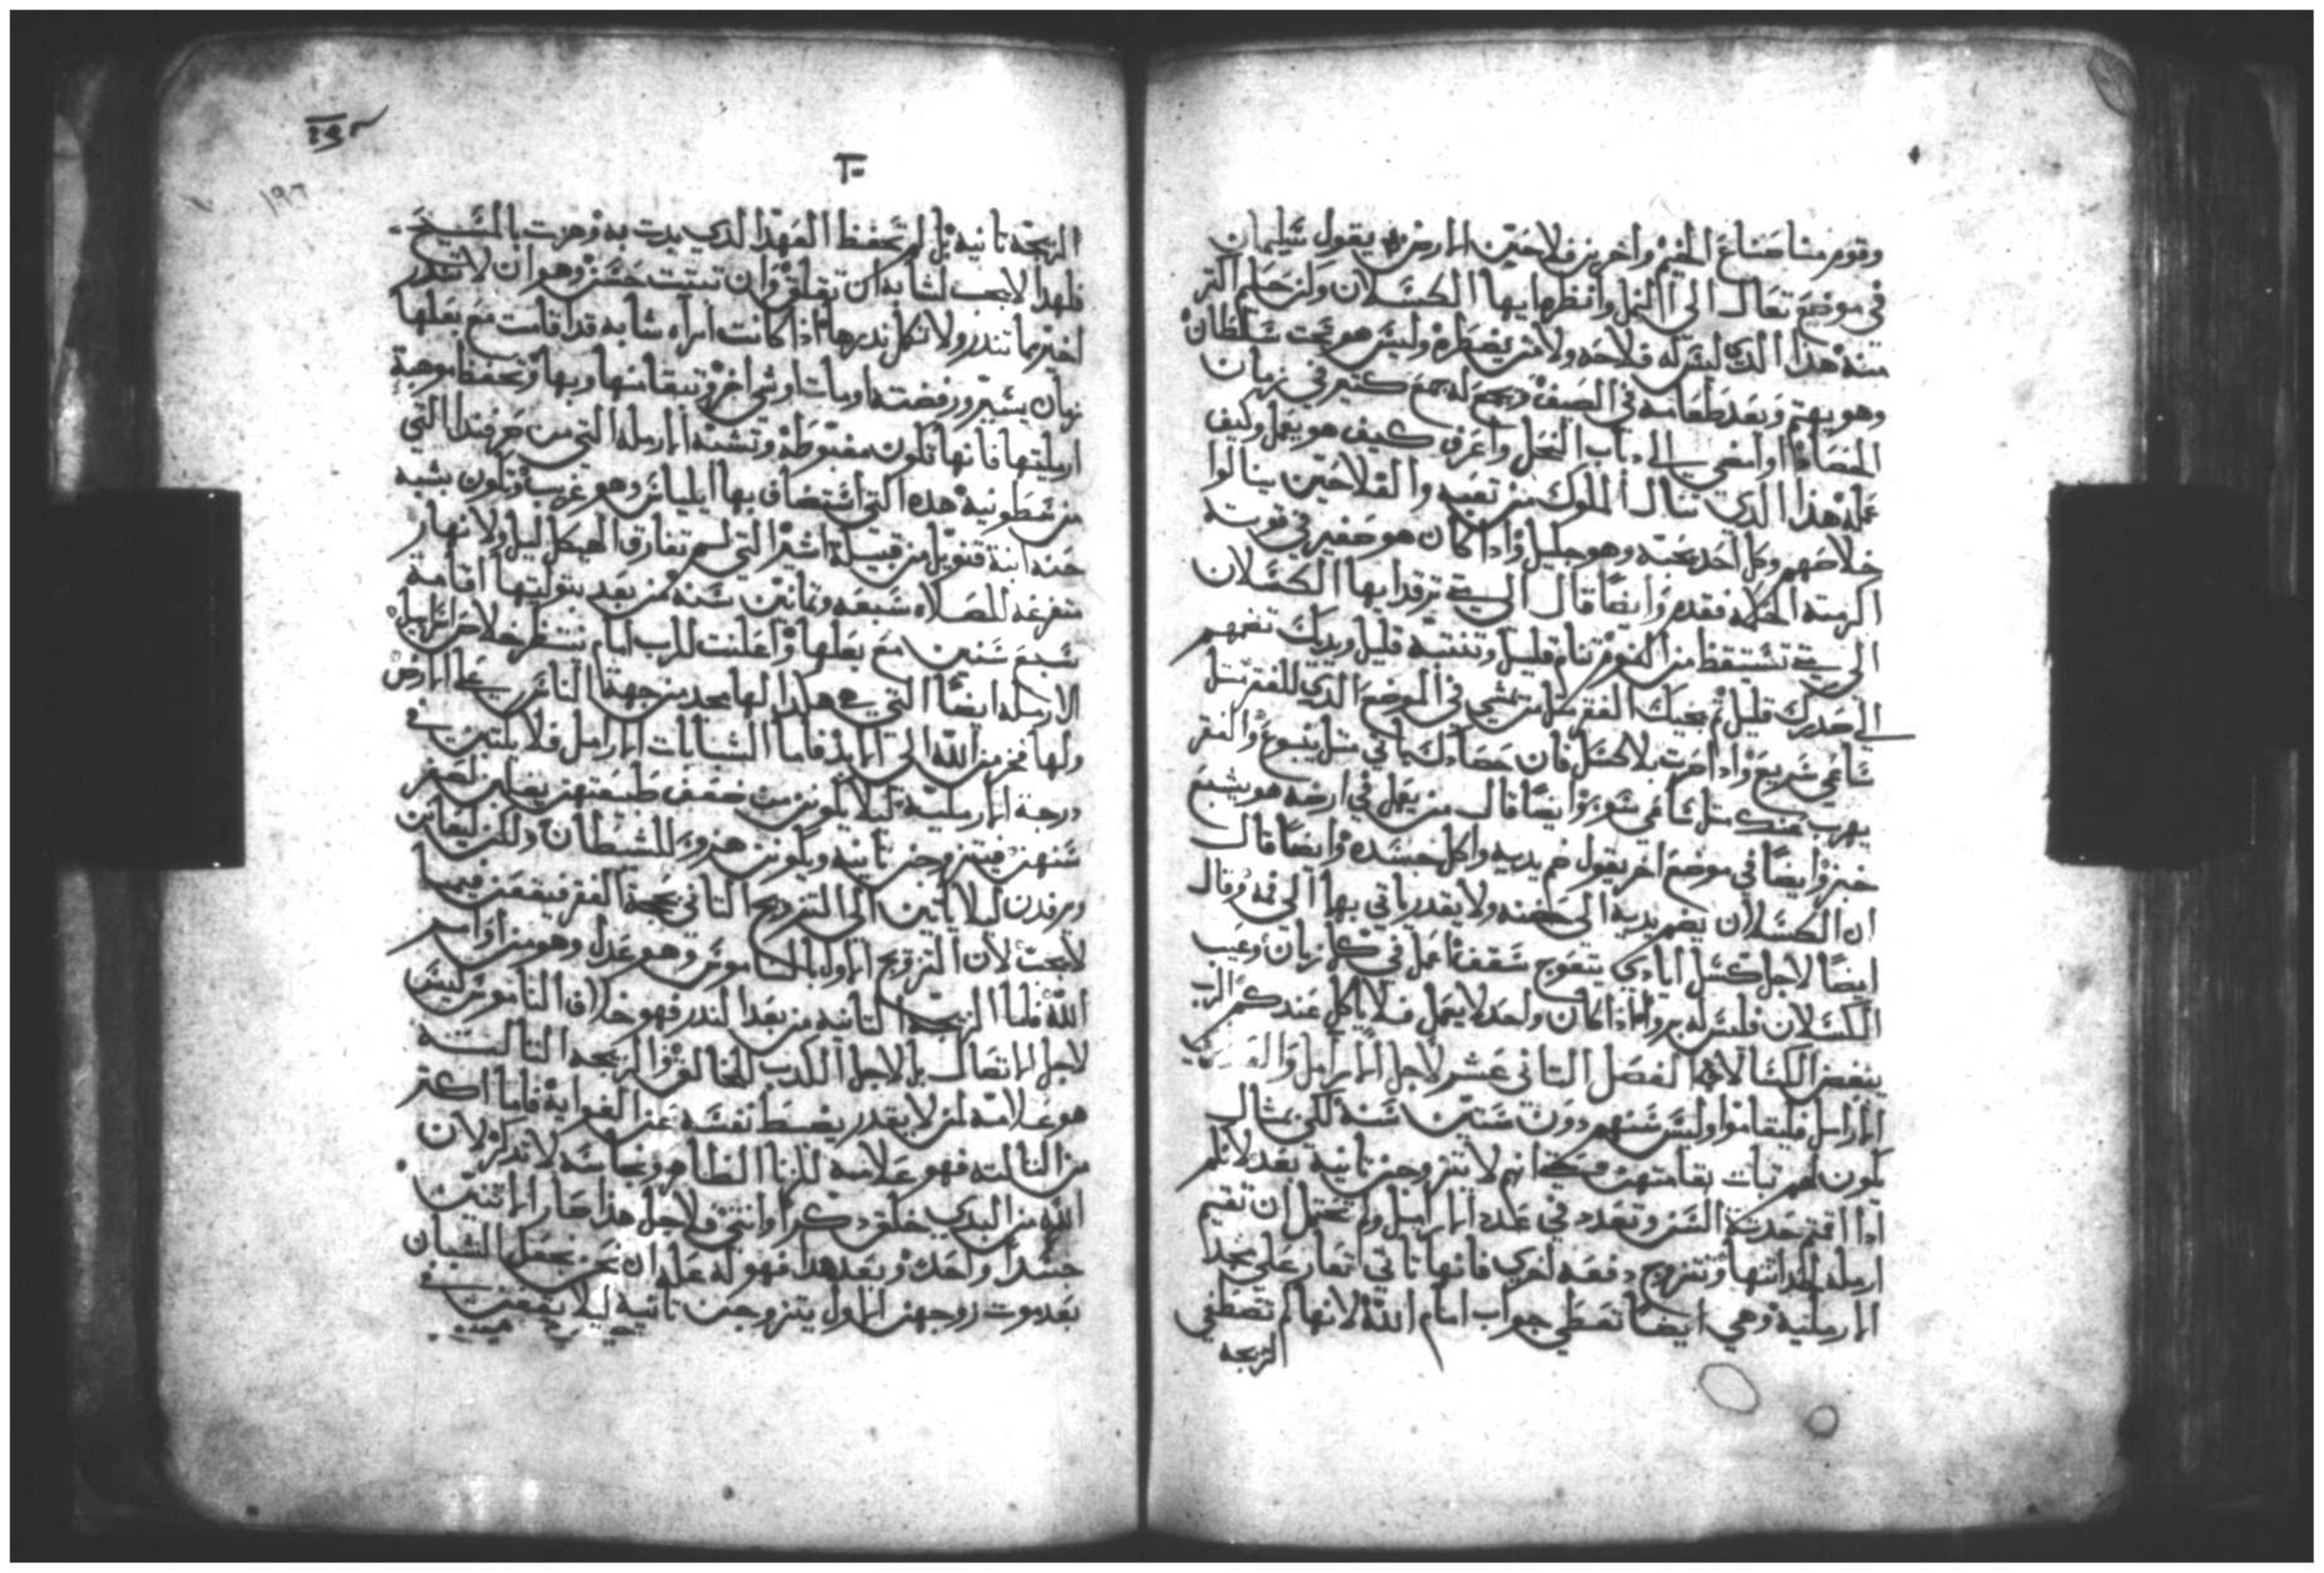 وقوم منا صناع الخيم واخرين فلاحين الارض يقول سليمان
في موضع تعال الى النمل وانظرها ايها الكسلان ولن حكيم اكثر
منه هذا الدي ليس له فلاحه ولا من يضطره وليس هو تحت سلطان
وهو يهتم وبعد طعامه في الصيف ويجمع له جمع كثير في زمان
الحصاد او امضي الى داب النحل واعرف كيف هو يعمل وكيف
عمله هذا الدي تنال الملوك من تعبه والفلاحين ينالوا
خلاصهم وكل احد يحبه وهو جليل واذا كان هو صغير في قوته
اكرمته الحكمه فقدم وايضا قال الى متى ترقد ايها الكسلان
الى متى تستيقظ من النوم تنام قليل وتنتبه قليل ويديك تضمهم
الى صدرك قليل ثم يجيك الفقر مثل من يمشي في الموضع الدي للفقر مثل
ساعي سريع واذا صرت بلا كسل فان حصادك ياتي مثل ينبوع والفقر
يهرب عندك مثل ساعي سوء وايضا قال من يعمل في ارضه هو يشبع
خبز وايضا في موضع اخر يقول ضم يديه واكل جسده وايضا قال
ان الكسلان يضم يديه الى حضنه ولا يقدر ياتي بها الى فمه وقال
ايضا لاجل كسل ايادي يتعوج سقف اعمل في كل زمان وعيب
الكسلان فليس له برو اذا كان واحد لا يعمل فلا ياكل عندكم الرب
يبغض الكسالا الفصل التاني عشر لاجل الارامل
الارامل فليقاموا وليس سنهم دون ستين سنه لكي بمثال
يكون لهم تبات بقامتهن انهم لا يتزوجن تانية بعد لانكم
ادا اقمتم حدثة السن وتعدد في عدد الارامل ولم تحتمل ان تقيم
ارمله لحداثتها وتتزوج دفعه اخرى فانها تاتي اتعار علي مجد
الارملنية وهي ايضا تعطي جواب امام الله لانها لم تصطفي
الزيجه
الزيجه تانيه بل لم تحفظ العهد الدي بدت به وهزت بالمسيح
فلهدا لا يجب لشابه ان تقلق وان تبتت حسن وهو ان لا تندر
اخير مما تندر ولا تكمل ندرها اذا كانت امراه شابه قد اقامت مع بعلها
زمان يسير ورفضته او مات او شي اخر وتبقا منها وبها وتحفظ موهبة
ارمليتها فانها تكون مغبوطة وتشبه الارمله التي من صرفندا التي
من سطونيه هده التي استضاف بها ايلياس وهو غريب او تكون بشبه
حنه ابنة فنويل من قبيلة اشير التي لم تفارق الهيكل ليل ولا نهار
متفرغه للصلاه سبعه وتمانين سنه من بعد بتوليتها اقامة
سبع سنين مع بعلها واعلنت للرب امام منتظر خلاص اسراييل
الارمله ايضا التي هي هكذا لها مجد من جهة الناس على الارض
ولها فخر من الله الى الابد فاما الشابات الارامل فلا يكتبن في
درجة الارملية ليلا يكونن من ضعف طبيعتهن يغلبن لصغر
سنهن فيتزوجن تانيه ويكونن هزوء للشيطان ولكن ليعانن
ويرفدن ليلا ياتين الى التزويج التاني بحجة الفقر فيقعن فيما
لا يجب لان التزويج الاول بالناموس وهو عدل وهو من اوامر
الله فاما الزيجه التانيه من بعد الندر فهو خلاف الناموس ليس
لاجل الاتصال بل لاجل الكدب المخالف والزيجه التالته
هو علامة لمن لا يقدر يضبط نفسه عن الغواية فاما اكتر
من التالته فهو علامه للزنا الظاهر ونجاسه لا تنكر لان
الله من البدي خلق ذكرا وانتى فلاجل هذا صار الاتنين
جسدا واحد وبعد هدا فهو له عله ان نحن نجعل الشبان
بعد موت زوجهن الاول يتزوجن تانية ليلا يقعن في